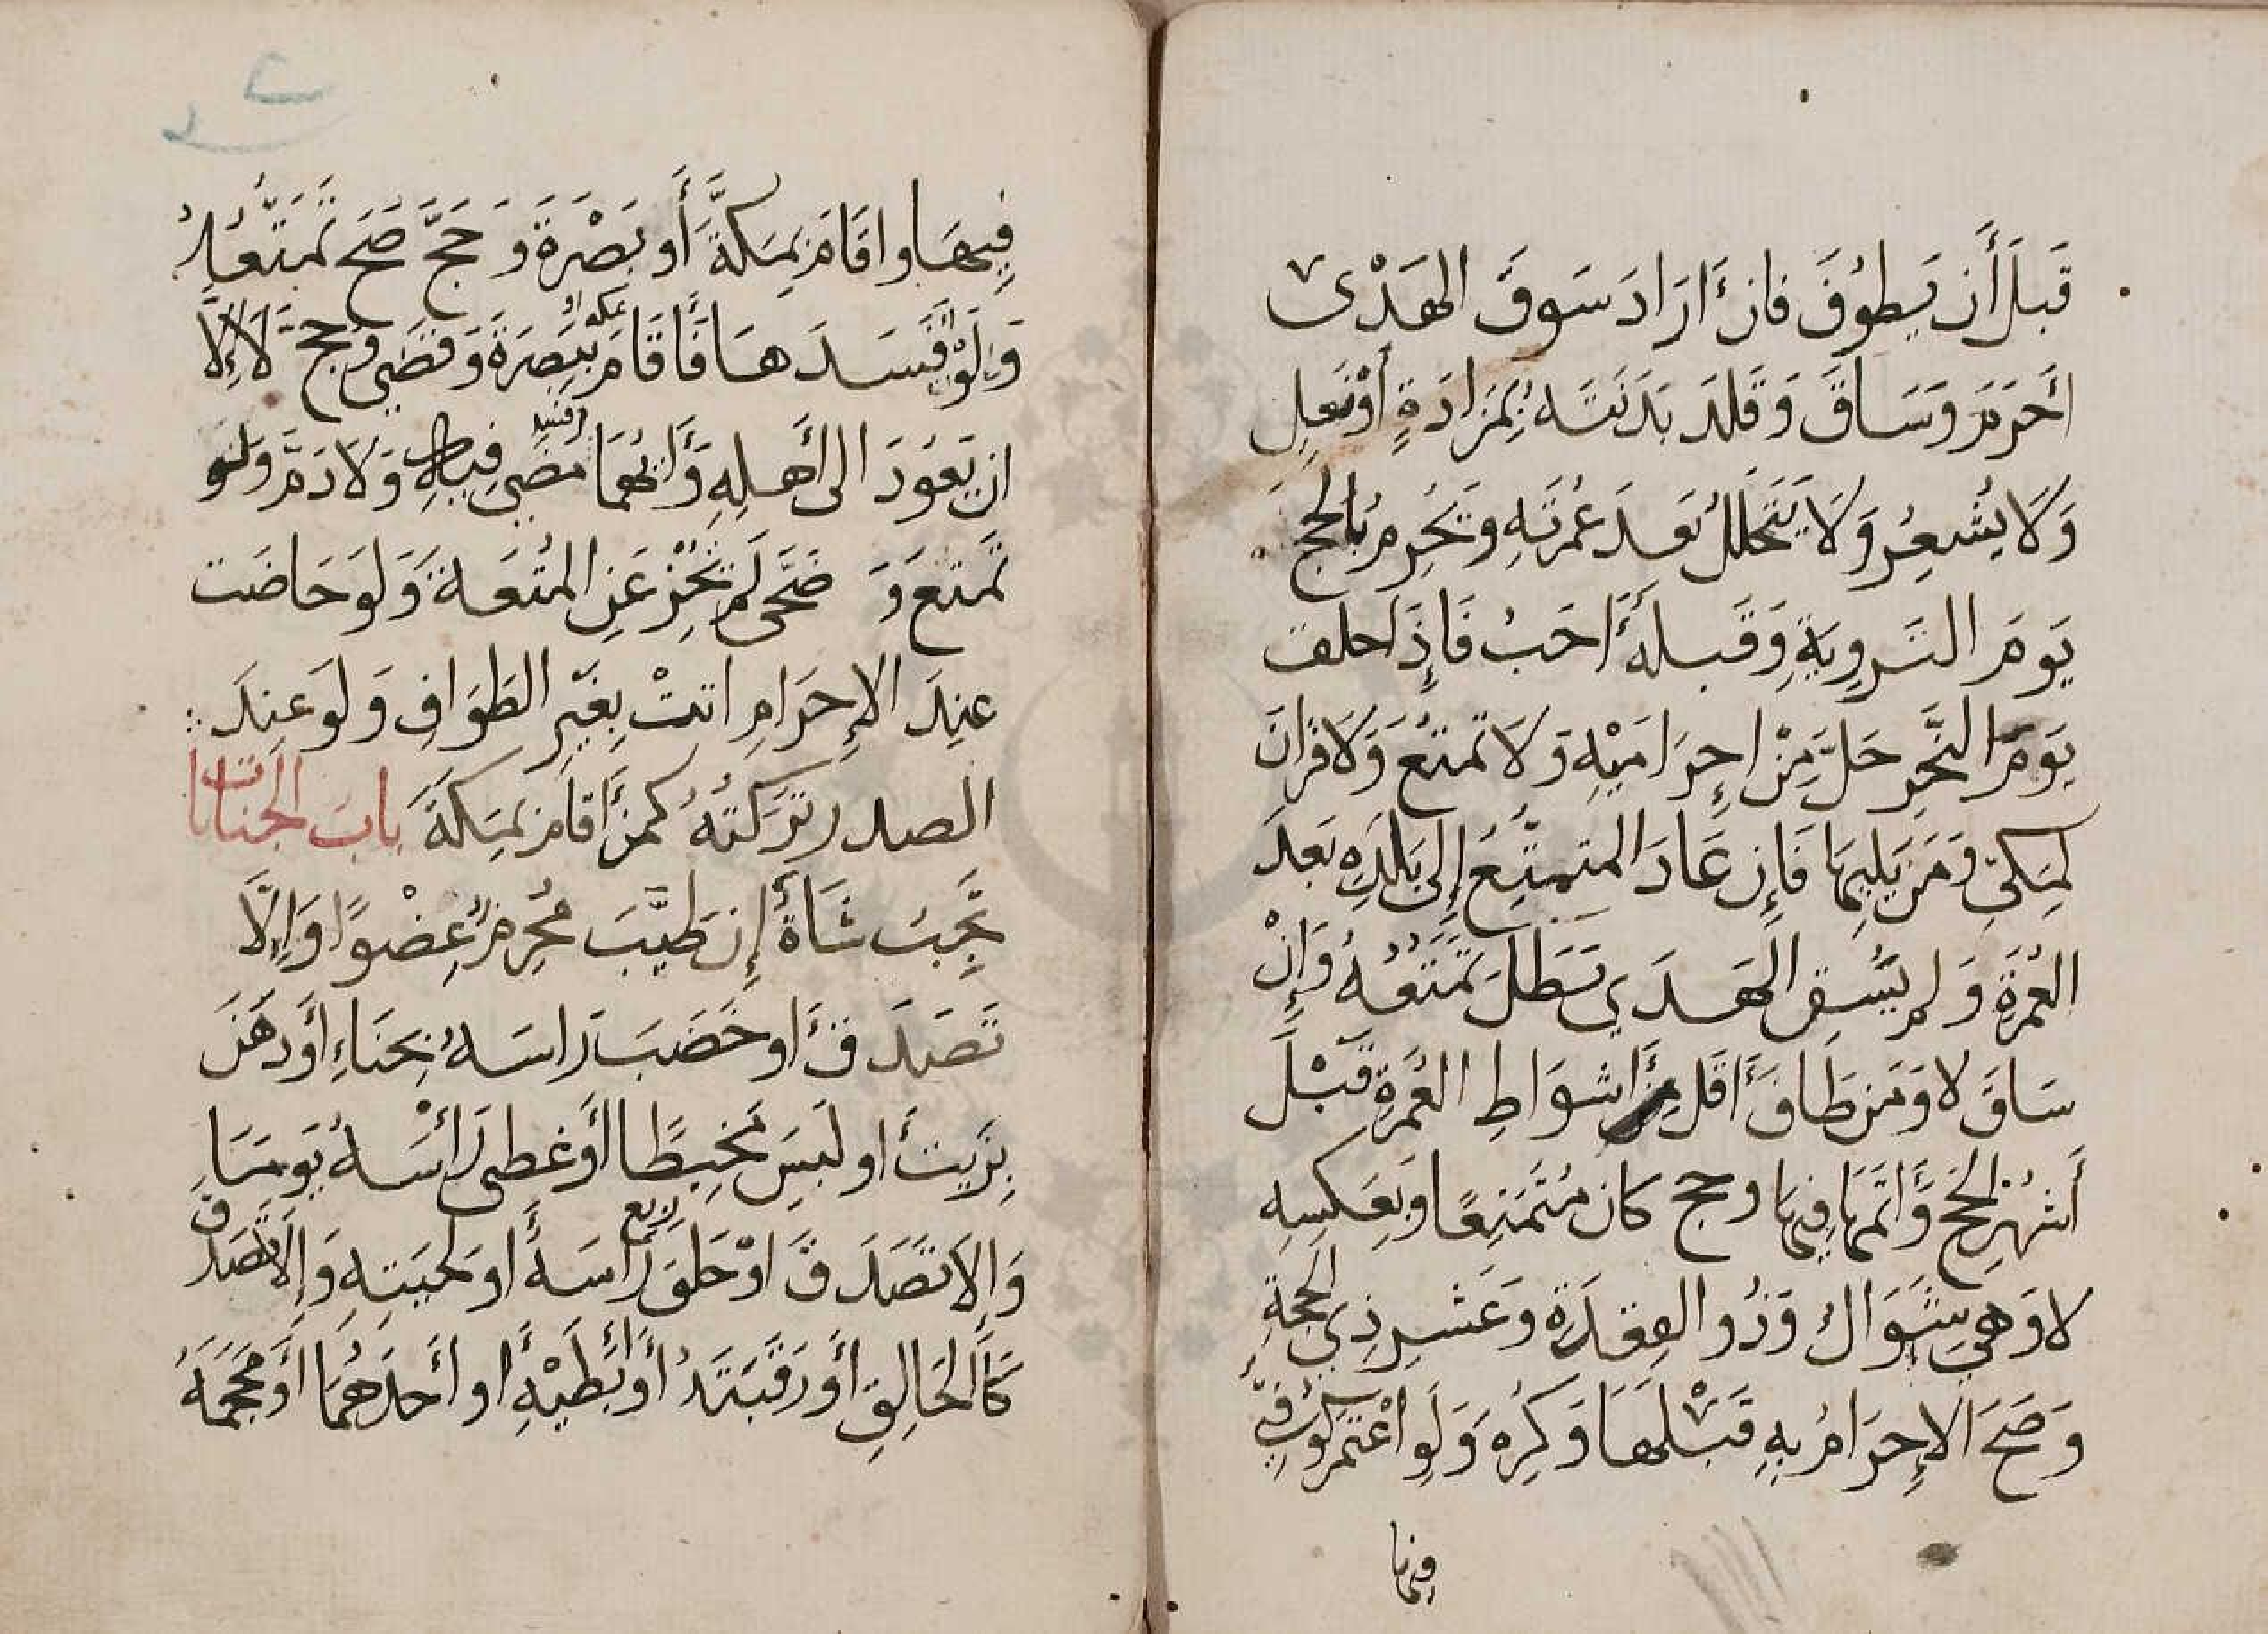 قَبلَ أَن يَطوُفَ فان أَرَادَ سَوقَ الهَدْى
احَرمَ وَسَاقَ وَقلدَ بَدَنَتَهُ بِمَزادَةٍ أَوْ نَعلٍ
وَلَا يُشعِرُ وَلَا يَتَحَلَلُ بَعدَ عُمرَتِهِ وَيَحُرِمُ بِالحَجِ
يَومَ التَروِيَةِ وَقَبلَهُ أَحَبُ فَإِذَا حلق
يَومَ النَّحرِ حَلَّ مِنْ اِحِرَامَيْهِ وَلَا تمَتعُ وَلَا قرانَ
لمِكَيِّ وَمَن يَلِيهَا فَإِن عَادَ المتمتِّعُ إِلى بَلَدِهِ بَعدَ
العُمرَةِ وَلم يَسُقِ الهَدَي بَطَلَ تَمَتُعُهُ وَإِنْ
سَاقَ لا وَمَن طَافَ أَقَل مِن أَشوَاطِ العُمرَةِ قَبْلَ
أَشهُرِ الحَجِ وَأَتَمَهَا فِيهَا وحج كان مُتَمَتِعًا وَبِعَكسِهِ
لا وَهِيَ شَوَالُ وَذُو القِعدَةِ وَعَشرِ ذِي الحِجَةِ
وَصَحَ الإِحرَامُ بِهِ قَبْلَهَا وَكُرِه وَلَوِ اعْتَمَرَ كُوفيٌّ
فيها
فِيهَا واقَامَ بِمَكَةَّ أَو بَصْرَةَ وَحَجَّ صَحَ تَمَتُّعُهُ
وَلَوْ اَفسَدهَا فَأَقَامَ بمكة او بِبَصرَةَ وَقضَى وَحجَّ لَا إِلَّا
ان يَعَودَ الى أَهلِهِ وَأَيُهُمَا افسد مضى فِيهِ وَلَا دَمَّ وَلَو
تَمتعَ وَضَحَّى لَم تُجْزِ عَنِ المُتعَةِ وَلَو حَاضَت
عِندَ الإِحرَامِ اتتْ بِغَيرِ الطَوَافِ وَلَو عنِدَ
الصدر تَركَتهُ كمَن أَقامَ بِمَكةَ بابَ الجنايات
تَجِبُ شَاةٌ إِن طَيَّبَ مُحرِمٌ عِضْوًا وَإِلَّا
تَصَدَقَ أَو خَضَبَ رَاسَهُ بِحِنَاءِ أَو دَهَنَ
بِزَيتَ أَو لَبسَ مَخيِطًا أَو غَطى رَأْسَهُ يَومًا
وَالِا تَصَدَقَ اوْ حَلقَ ربع رَاسَهُ أَو لحيَتِهِ وَإِلا تَصَدَق
كَالحَالِقِ أَو رَقَبَتَهُ أَو إِبْطَيْهِ أَو أَحَدَهُمَا أَو مَحجَمَهُ